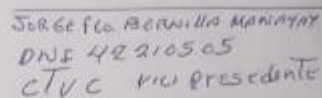 JORGE FCO BERNILLA MANAYAY
DNI 42210505
CTVC vici presedente